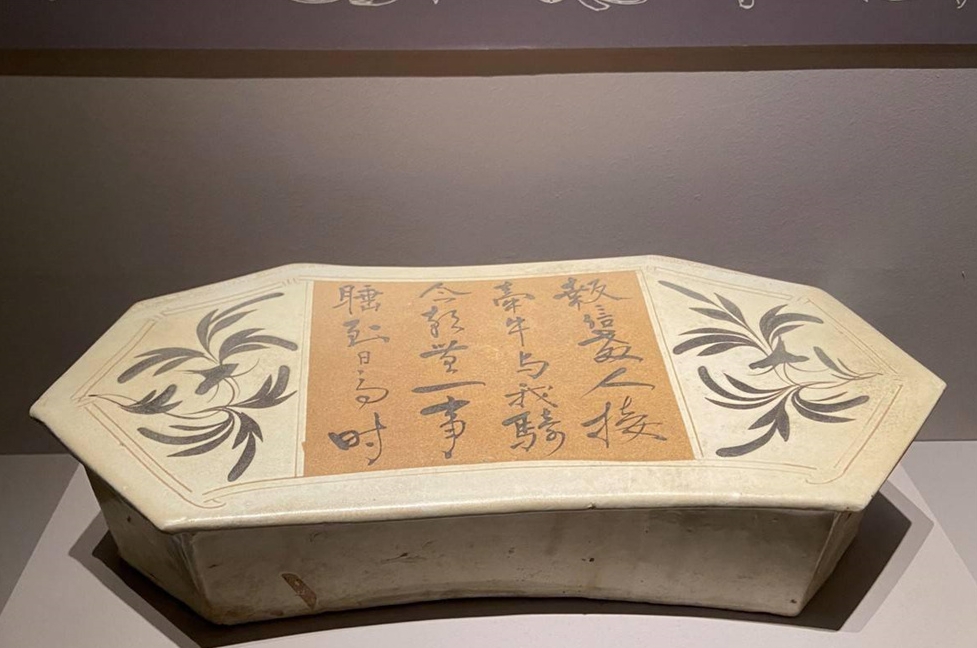 報信教人接
牽牛与我騎
今朝無一事
睡到日高时